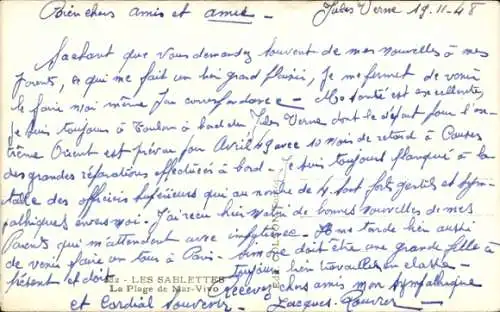 Bien chers amis et amie -
Jules Verne 19-11-48
Sachant que vous demandez souvent de mes nouvelles à mes
Parents, ce qui me fait un bien grand plaisir, je me permet de venir
le faire moi même par correspondance - Ma santé est excellente,
je suis toujours à Toulon à bord du Jules Verne dont le départ pour l'ex-
trême Orient est prévu pour Avril 49 avec 10 mois de retard à Causes
des grandes réparations effectuées à bord. Je suis toujours planqué à la
table des officiers supérieurs qui au nombre de 4 sont forts gentils et sym-
pathiques envers moi. J'ai reçu hier matin de bonnes nouvelles de mes
Parents qui m'attendent avec impatience. Il me tarde bien aussi
de venir faire un tour à Paris. doit être une grande fille à
présent et doit toujours bien travailler en classe -
- LES SABLETTES
La Plage de Mar-Vivo
Recevez chers amis mon sympathique
et Cordial Souvenir - Jacques